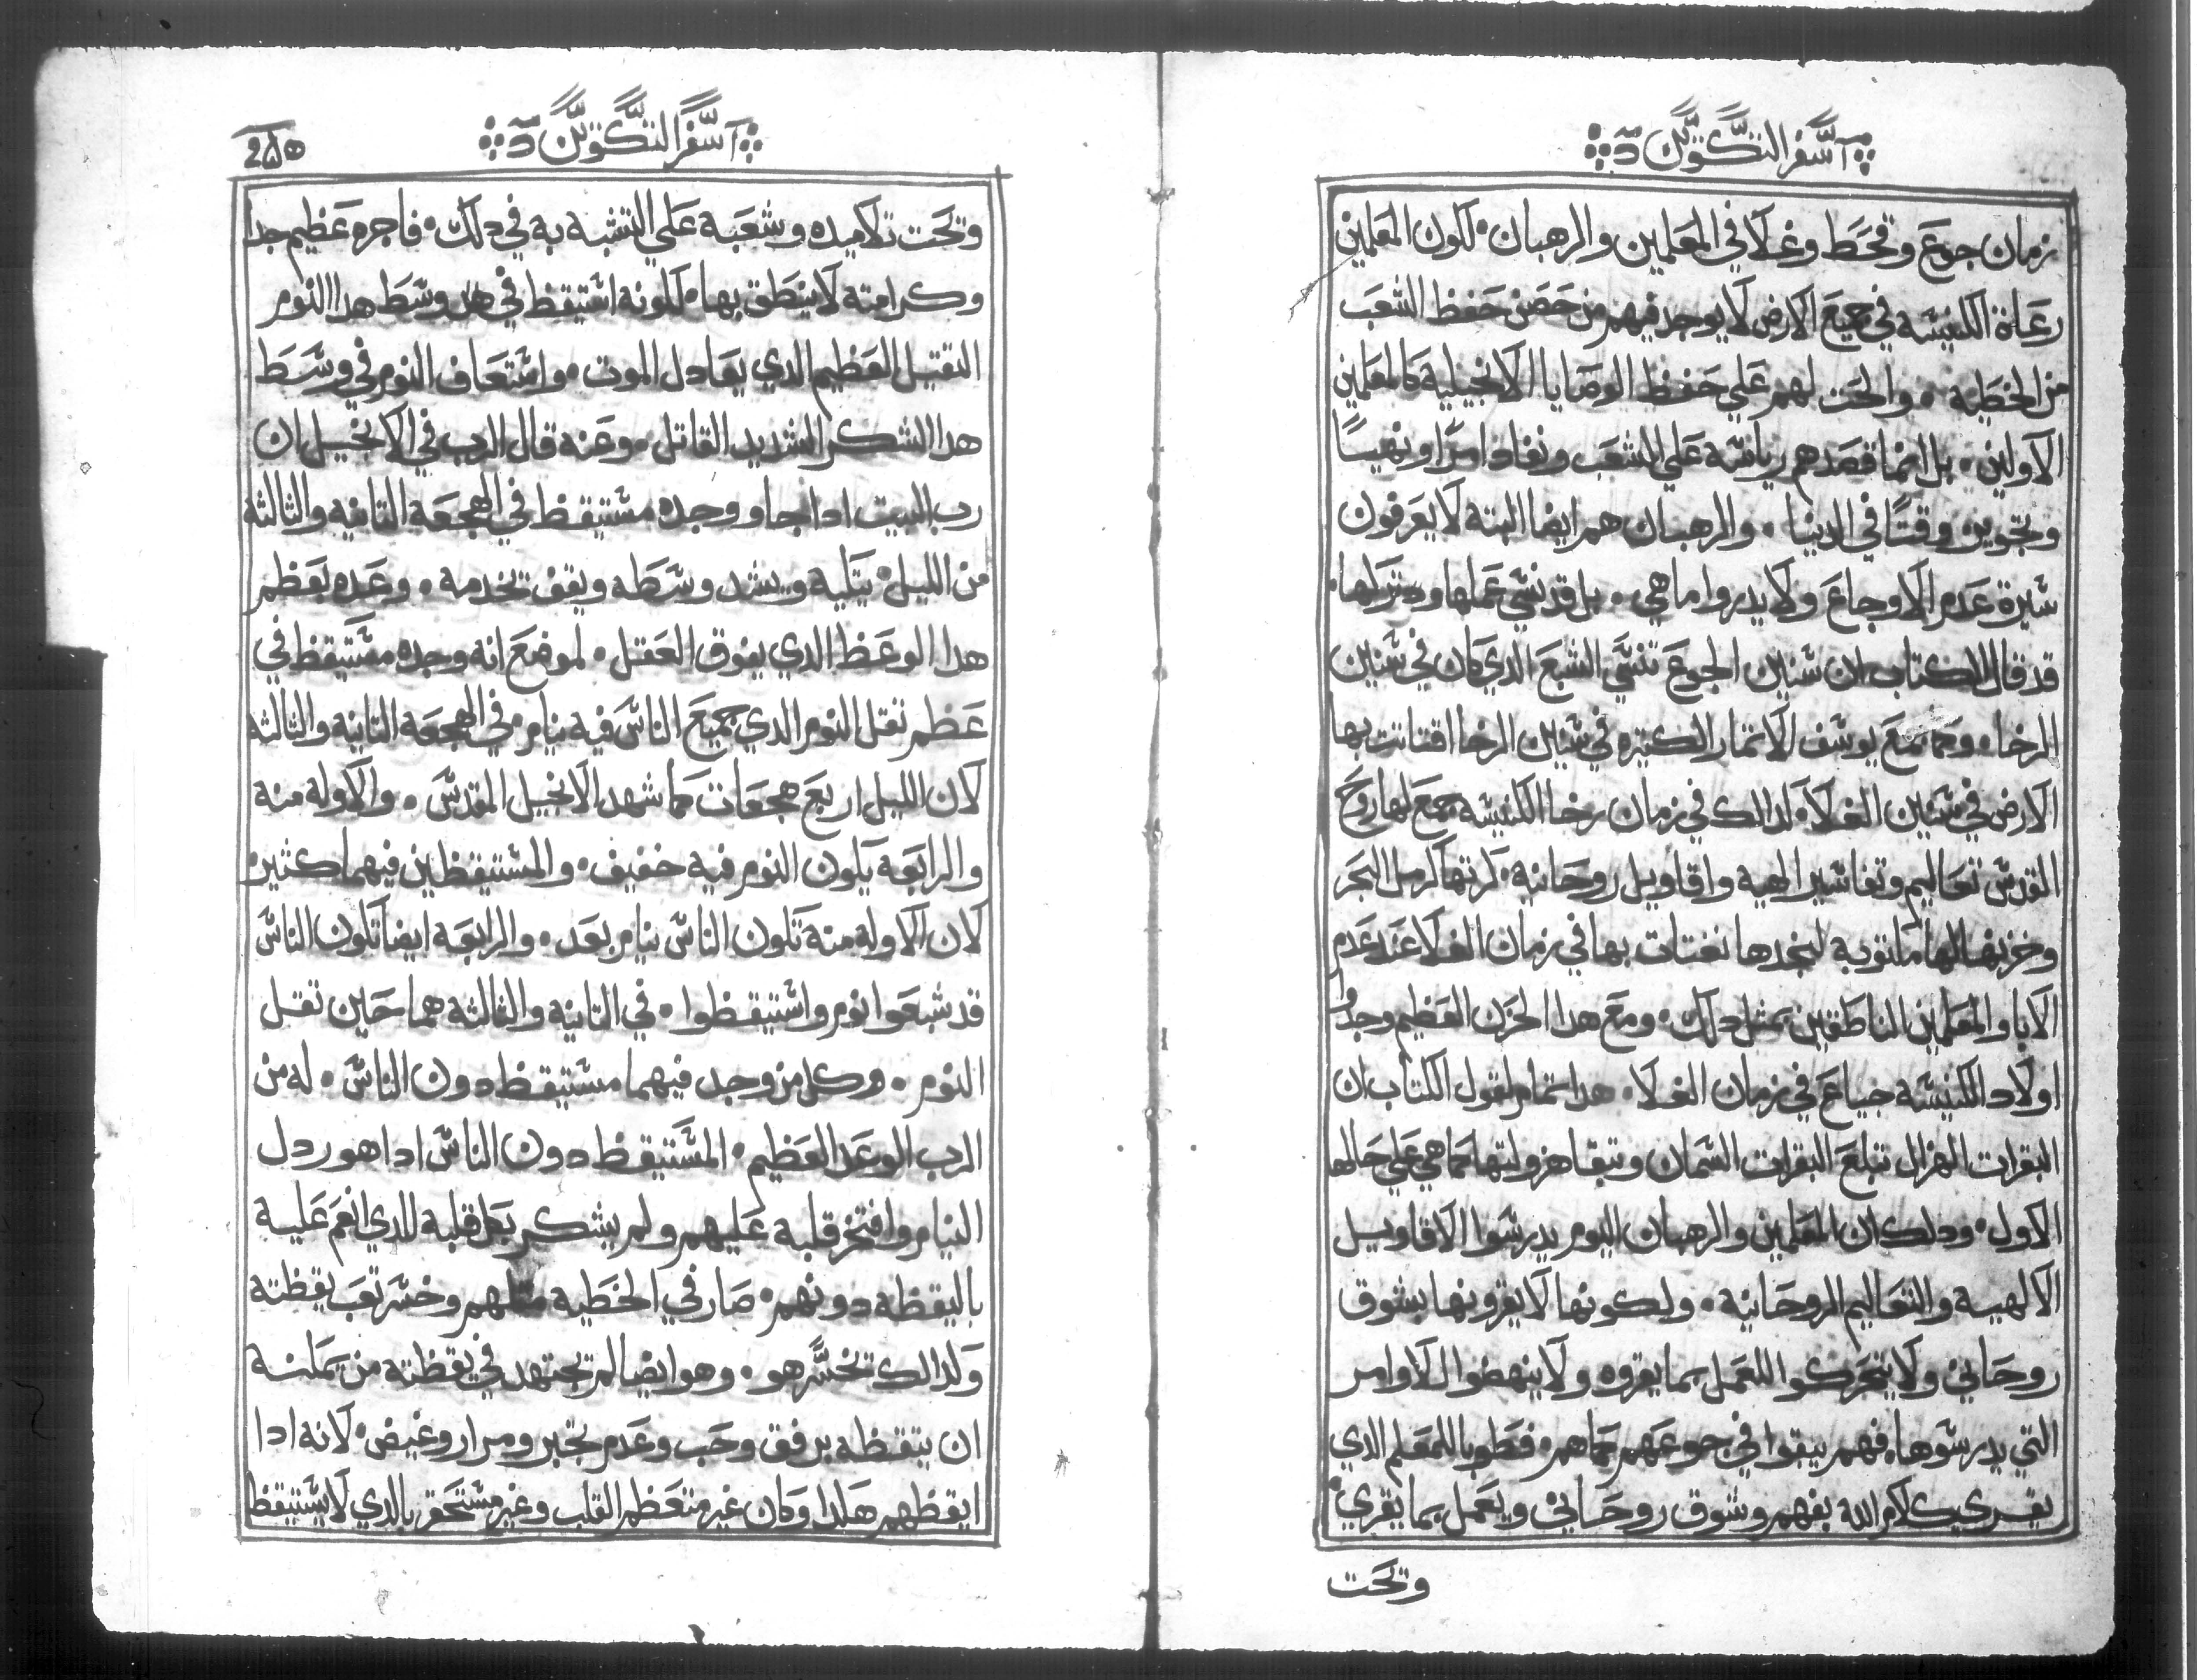 سفر التكوين
زمان جوع وقحط وغلا في المعلمين والرهبان ٠ لكون المعلمين
رعاة الكنيسه في جميع الارض لا يوجد فيهم من حصن حفظ الشعب
من الخطيه ٠ والحت لهم علي حفظ الوصايا الانجيليه كالمعلمين
الاولين ٠ بل انما قصدهم رياسه علي الشعب ونفاد امرًا ونهيًا
وتجوين وقتًا في الدنيا ٠ والرهبان هم ايضا البته لا يعرفون
سيرة عدم الاوجاع ولا يدروا ما هي ٠ بل قد نسي عملها ودترلها ٠
قد قال الكتاب ان سنين الجوع تنسي الشبع الدي كان في سنين
الرخا ٠ وكما جمع يوسف الاتمار الكتيره في سنين الرخا اقتاتت بها
الارض في سنين الغلا ٠ لدالك في زمان رخا الكنيسه جمع لها روح
القدس تعاليم وتفاسير الهيه واقاويل روحانيه ٠ كرتها كرمل البحر
وخزنها لها مكتوبه لنجدها نقتات بها في زمان الغلا عند عدم
الابا والمعلمين الناطقين بمثل دلك ٠ ومع هدا الحزن العظيم وجدوا
اولاد الكنيسه جياع في زمان الغلا ٠ هدا تمام لقول الكتاب ان
البقرات الهزال تبلع البقرات السمان وتبقا هزولتها كما هي علي حالها
الاول ٠ ودلك ان المعلمين والرهبان اليوم يدرسوا الاقاويل
الالهيه والتعاليم الروحانيه ٠ ولكونها لا يقرونها بشوق
روحاني ولا يتحركوا اللعمل بما يقروه ولا ينهضوا للاوامر
التي يدرسوها ٠ فهم يبقوا في جوعهم كما هم ٠ فطوبا للمعلم الدي
يقري كلام الله بفهم وشوق روحاني ويعمل بما يقري ٠
وتحت
سفر التكوين
وتحت تلاميده وشعبه علي التشبه به في دلك ٠ فاجره عظيم جدا
وكرامته لا ينطق بها ٠ لكونه استيقظ في وسط هدا النوم
التقيل العظيم الدي يعادل الموت ٠ واستعاف النوم في وسط
هدا السكر الشديد القاتل ٠ وعنه قال الرب في الانجيل ان
رب البيت ادا جا ووجده مستيقظ في الهجعه التانيه والثالثه
من الليل ٠ يتكيه ويشد وسطه ويقف تخدمه ٠ وعده بعظم
هدا الوعظ الدي يفوق العقل ٠ لموضع انه وجده مستيقظ في
عظم تقل النوم الدي جميع الناس فيه نيام في الهجعه التانيه والثالثه
لان الليل اربع هجعات كما شهد الانجيل المقدس ٠ والاوله منه
والرابعه يكون النوم فيه خفيف ٠ والمستيقظين فيهما كثيره
لان الاوله منه تكون الناس نيام بعد ٠ والرابعه ايضا تكون الناس
قد شبعوا نوم واستيقظوا ٠ في التانيه والثالثه هما حين تقل
النوم ٠ وكل من وجد فيهما مستيقظ دون الناس ٠ له من
الرب الوعد العظيم ٠ المستيقظ دون الناس ادا هو ردل
النيام وافتخر قلبه عليهم ولم يشكر بكل قلبه للدي انعم عليه
باليقظه دونهم ٠ صار في الخطيه متلهم وخسر تعب يقظته
ولدالك تخسر هو ٠ وهو ايضا لم تجتهد في يقظته من يمكنه
ان يتقظه برفق وحب وعدم تجبر ومرار وغيض ٠ لانه ادا
ايقظهم هكدا وكان غير متعظم القلب وغير مستحقر بالدي لا يستيقظ